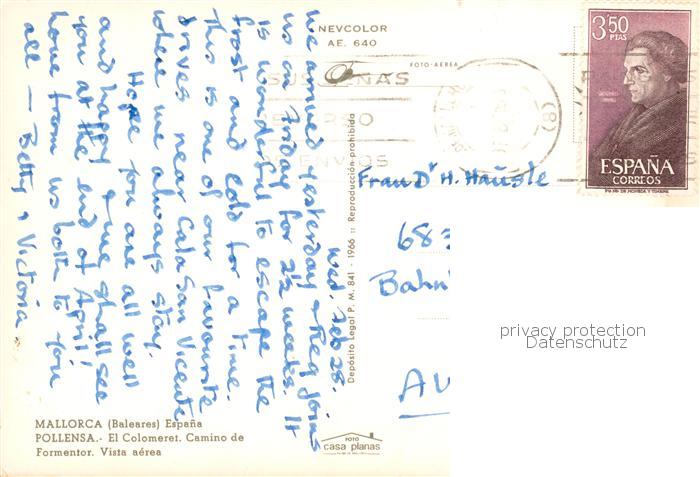 NEVCOLOR
AE. 640
FOTO-AEREA
3,50
PTAS
ESPAÑA
CORREOS
Wed. Feb 28.
We arrived yesterday & Reg joins
us on Friday for 2½ weeks. It
is wonderful to escape the
frost and cold for a time.
This is one of our favourite
drives near Cala San Vicente
where we always stay.
Hope you are all well
and happy & we shall see
you at the end of April!
Love from us both to you
all — Betty & Victoria
Depósito Legal P. M. 841 - 1966 :: Reproducción prohibida
Frau Dr H. Häusle
683
Bahn
AU
privacy protection
Datenschutz
MALLORCA (Baleares) España
POLLENSA.- El Colomeret. Camino de
Formentor. Vista aérea
FOTO
casa planas